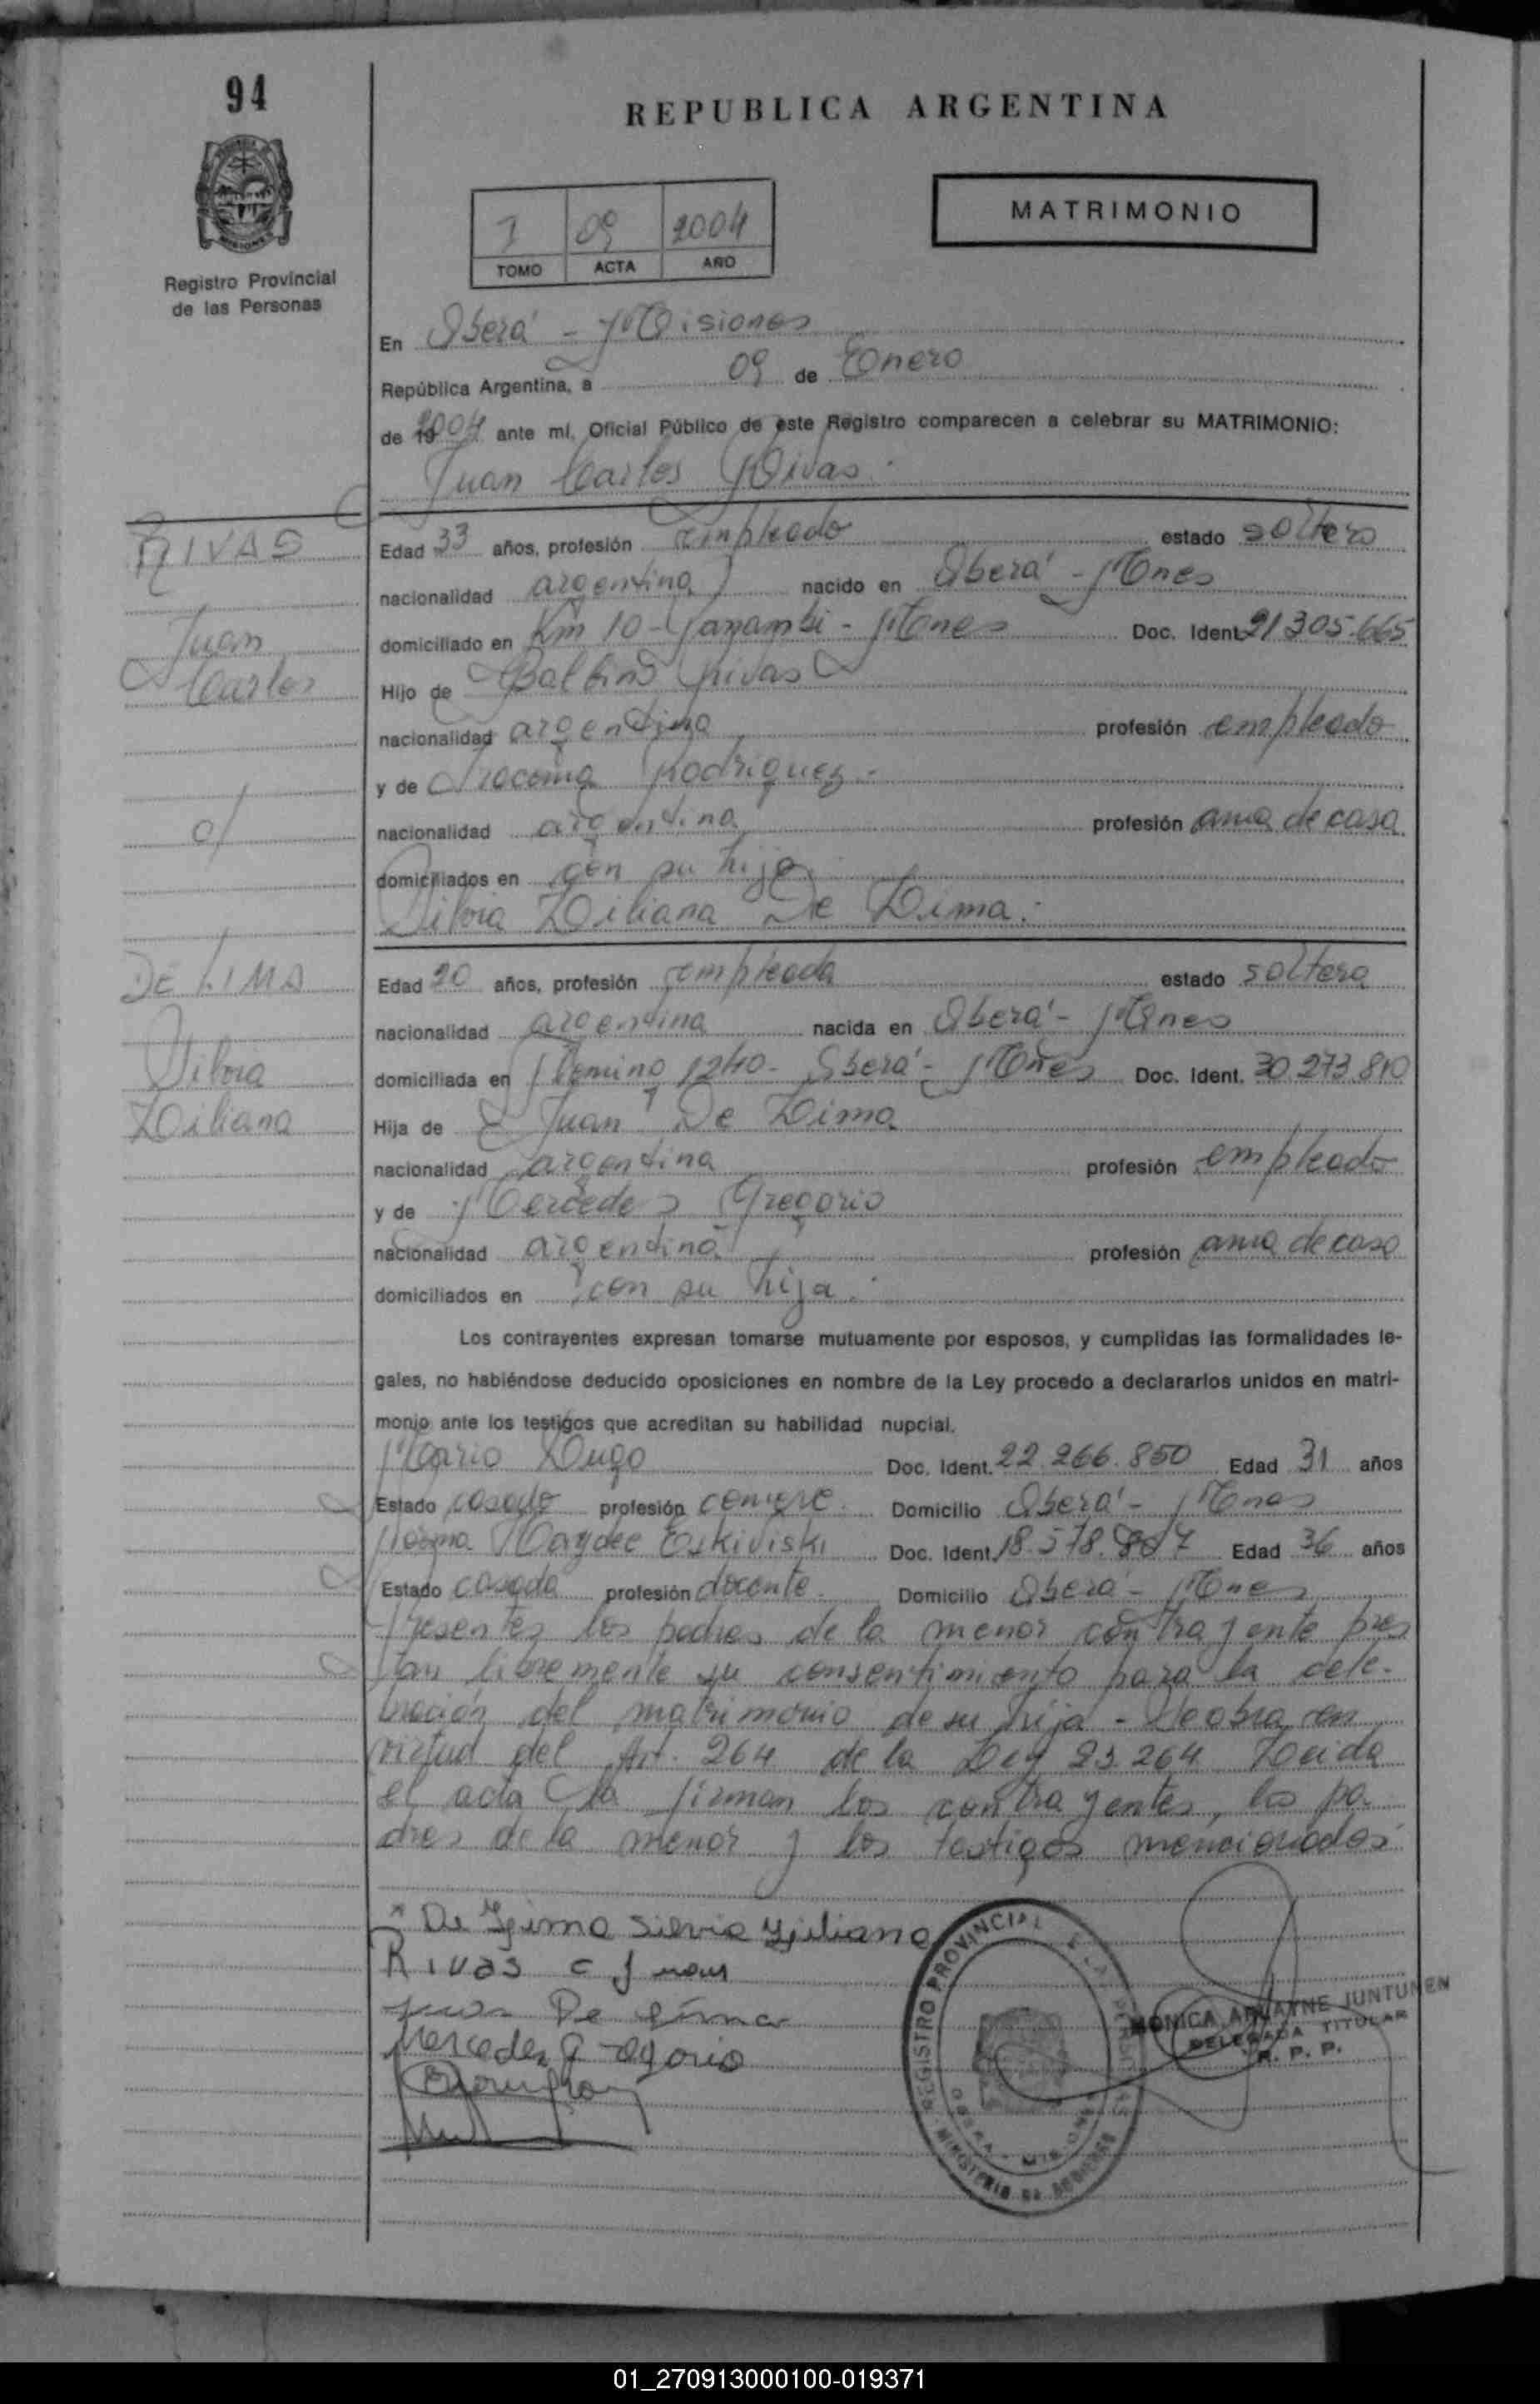 94
REPUBLICA ARGENTINA
MATRIMONIO
1 09 2004
TOMO ACTA AÑO
Registro Provincial
de las Personas
En Oberá - Misiones
República Argentina, a 09 de Enero
de 2004 ante mí, Oficial Público de este Registro comparecen a celebrar su MATRIMONIO:
Juan Carlos Rivas.
RIVAS
Juan
Carlos
c/
Edad 33 años, profesión empleado estado soltero
nacionalidad argentina nacido en Oberá - Mnes
domiciliado en Km 10 - Mnes Doc. Ident. 21.305.665
Hijo de Balbino Rivas
nacionalidad argentina profesión empleado
y de Rodriguez.
nacionalidad argentina profesión ama de casa
domiciliados en con su hijo
Silvia Liliana De Lima.
DE LIMA
Silvia
Liliana
Edad 20 años, profesión empleada estado soltera
nacionalidad argentina nacida en Oberá - Mnes
domiciliada en 1240 - Oberá - Mnes Doc. Ident. 30.273.810
Hija de Juan De Lima
nacionalidad argentina profesión empleado
y de Mercedes Gregorio
nacionalidad argentina profesión ama de casa
domiciliados en con su hija.
Los contrayentes expresan tomarse mutuamente por esposos, y cumplidas las formalidades le-
gales, no habiéndose deducido oposiciones en nombre de la Ley procedo a declararlos unidos en matri-
monio ante los testigos que acreditan su habilidad nupcial.
Mario Lugo Doc. Ident. 22.266.850 Edad 31 años
Estado casado profesión comerc. Domicilio Oberá - Mnes
Norma Haydee Eskiviski Doc. Ident. 18.578. Edad 36 años
Estado casada profesión docente. Domicilio Oberá - Mnes
Presentes los padres de la menor contrayente pres
tan libremente su consentimiento para la cele-
bración del matrimonio de su hija - Se obra en
virtud del Art. 264 de la Ley 23.264 Leida
el acta la firman los contrayentes, los pa
dres de la menor y los testigos mencionados.
De Lima Silvia Liliana
Rivas C Juan
Juan De Lima
Mercedes Gregorio
REGISTRO PROVINCIAL DE LAS PERSONAS
OBERA - MISIONES
MINISTERIO DE GOBIERNO
MONICA JUNTUNEN
DELEGADA TITULAR
R. P. P.
01_270913000100-019371